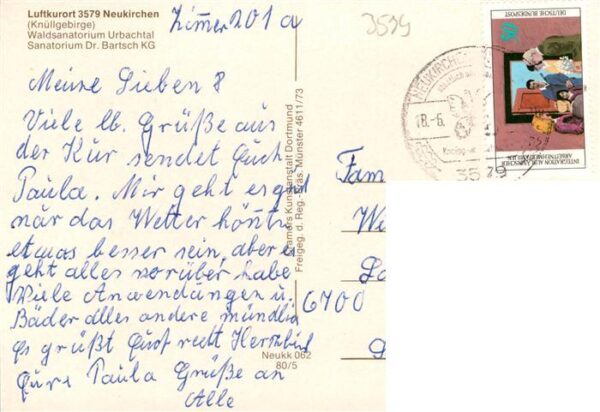 Luftkurort 3579 Neukirchen
(Knüllgebirge)
Waldsanatorium Urbachtal
Sanatorium Dr. Bartsch KG
Zimer 201 a
3579
Meine Lieben 8
Viele lb. Grüße aus
der Kur sendet Euch
Paula. Mir geht es gut
när das Wetter könnte
etwas besser sein, aber es
geht alles vorüber habe
Viele Anwendungen u.
Bäder alles andere mündlich
Es grüßt Euch recht Herzlich
Eure Paula Grüße an
Alle
Cramers Kunstanstalt Dortmund
Freigeg. d. Reg.-Präs. Münster 4611/73
Neukk 062
80/5
Fam
6700
NEUKIRCHEN
18.-6.
3579
DEUTSCHE BUNDESPOST
INTEGRATION AUSLÄNDISCHER
ARBEITNEHMERFAMILIEN